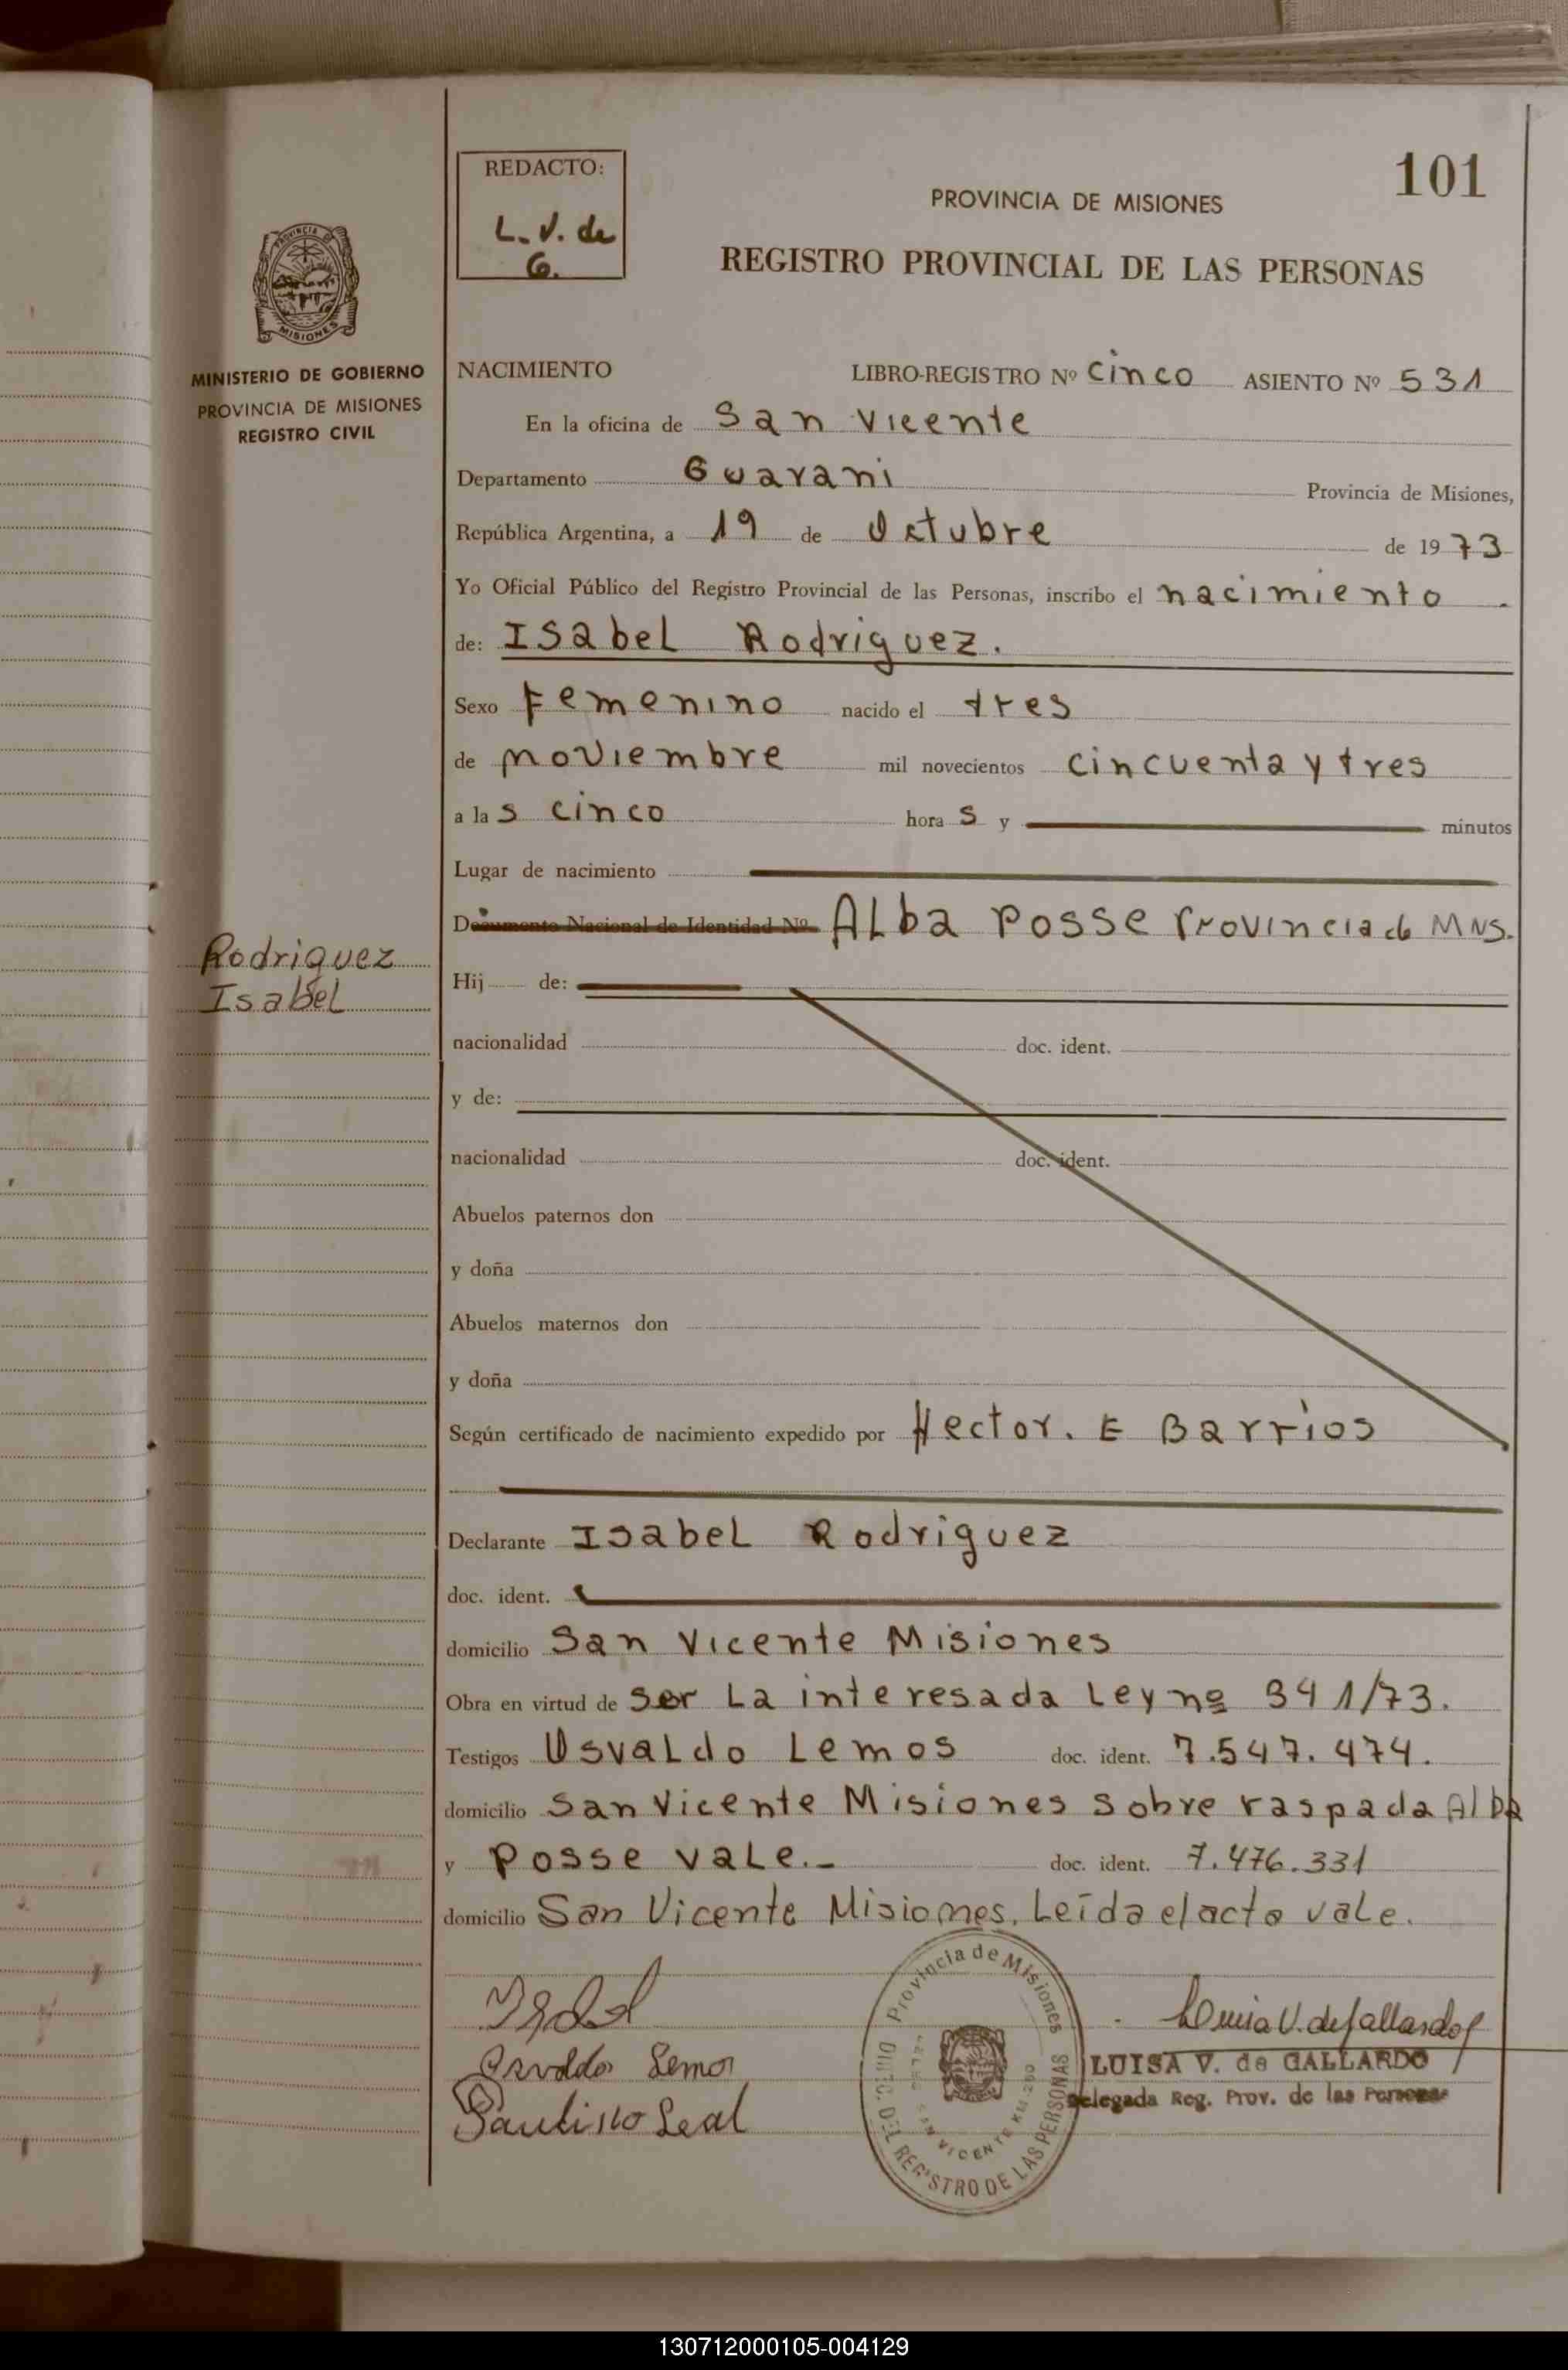 101
REDACTO:
L. V. de
G.
PROVINCIA DE MISIONES
REGISTRO PROVINCIAL DE LAS PERSONAS
PROVINCIA DE
MISIONES
MINISTERIO DE GOBIERNO
PROVINCIA DE MISIONES
REGISTRO CIVIL
NACIMIENTO LIBRO-REGISTRO Nº cinco ASIENTO Nº 531
En la oficina de San Vicente
Departamento Guarani Provincia de Misiones,
República Argentina, a 19 de Octubre de 1973
Yo Oficial Público del Registro Provincial de las Personas, inscribo el nacimiento
de: Isabel Rodriguez.
Sexo Femenino nacido el tres
de noviembre mil novecientos cincuenta y tres
a las cinco horas y minutos
Lugar de nacimiento
Documento Nacional de Identidad Nº Alba Posse Provincia de MNS.
Rodriguez
Isabel
Hij de:
nacionalidad doc. ident.
y de:
nacionalidad doc. ident.
Abuelos paternos don
y doña
Abuelos maternos don
y doña
Según certificado de nacimiento expedido por Hector. E Barrios
Declarante Isabel Rodriguez
doc. ident.
domicilio San Vicente Misiones
Obra en virtud de ser La interesada Ley nº 341/73.
Testigos Osvaldo Lemos doc. ident. 7.547.474.
domicilio San Vicente Misiones sobre raspada Alba
y Posse vale.- doc. ident. 7.476.331
domicilio San Vicente Misiones. Leída el acta vale.
Osvaldo Lemos
Leal
Provincia de Misiones
DIREC. DEL REGISTRO DE LAS PERSONAS
SAN VICENTE
Luisa V. de Gallardo
LUISA V. de GALLARDO
Delegada Reg. Prov. de las Personas
130712000105-004129